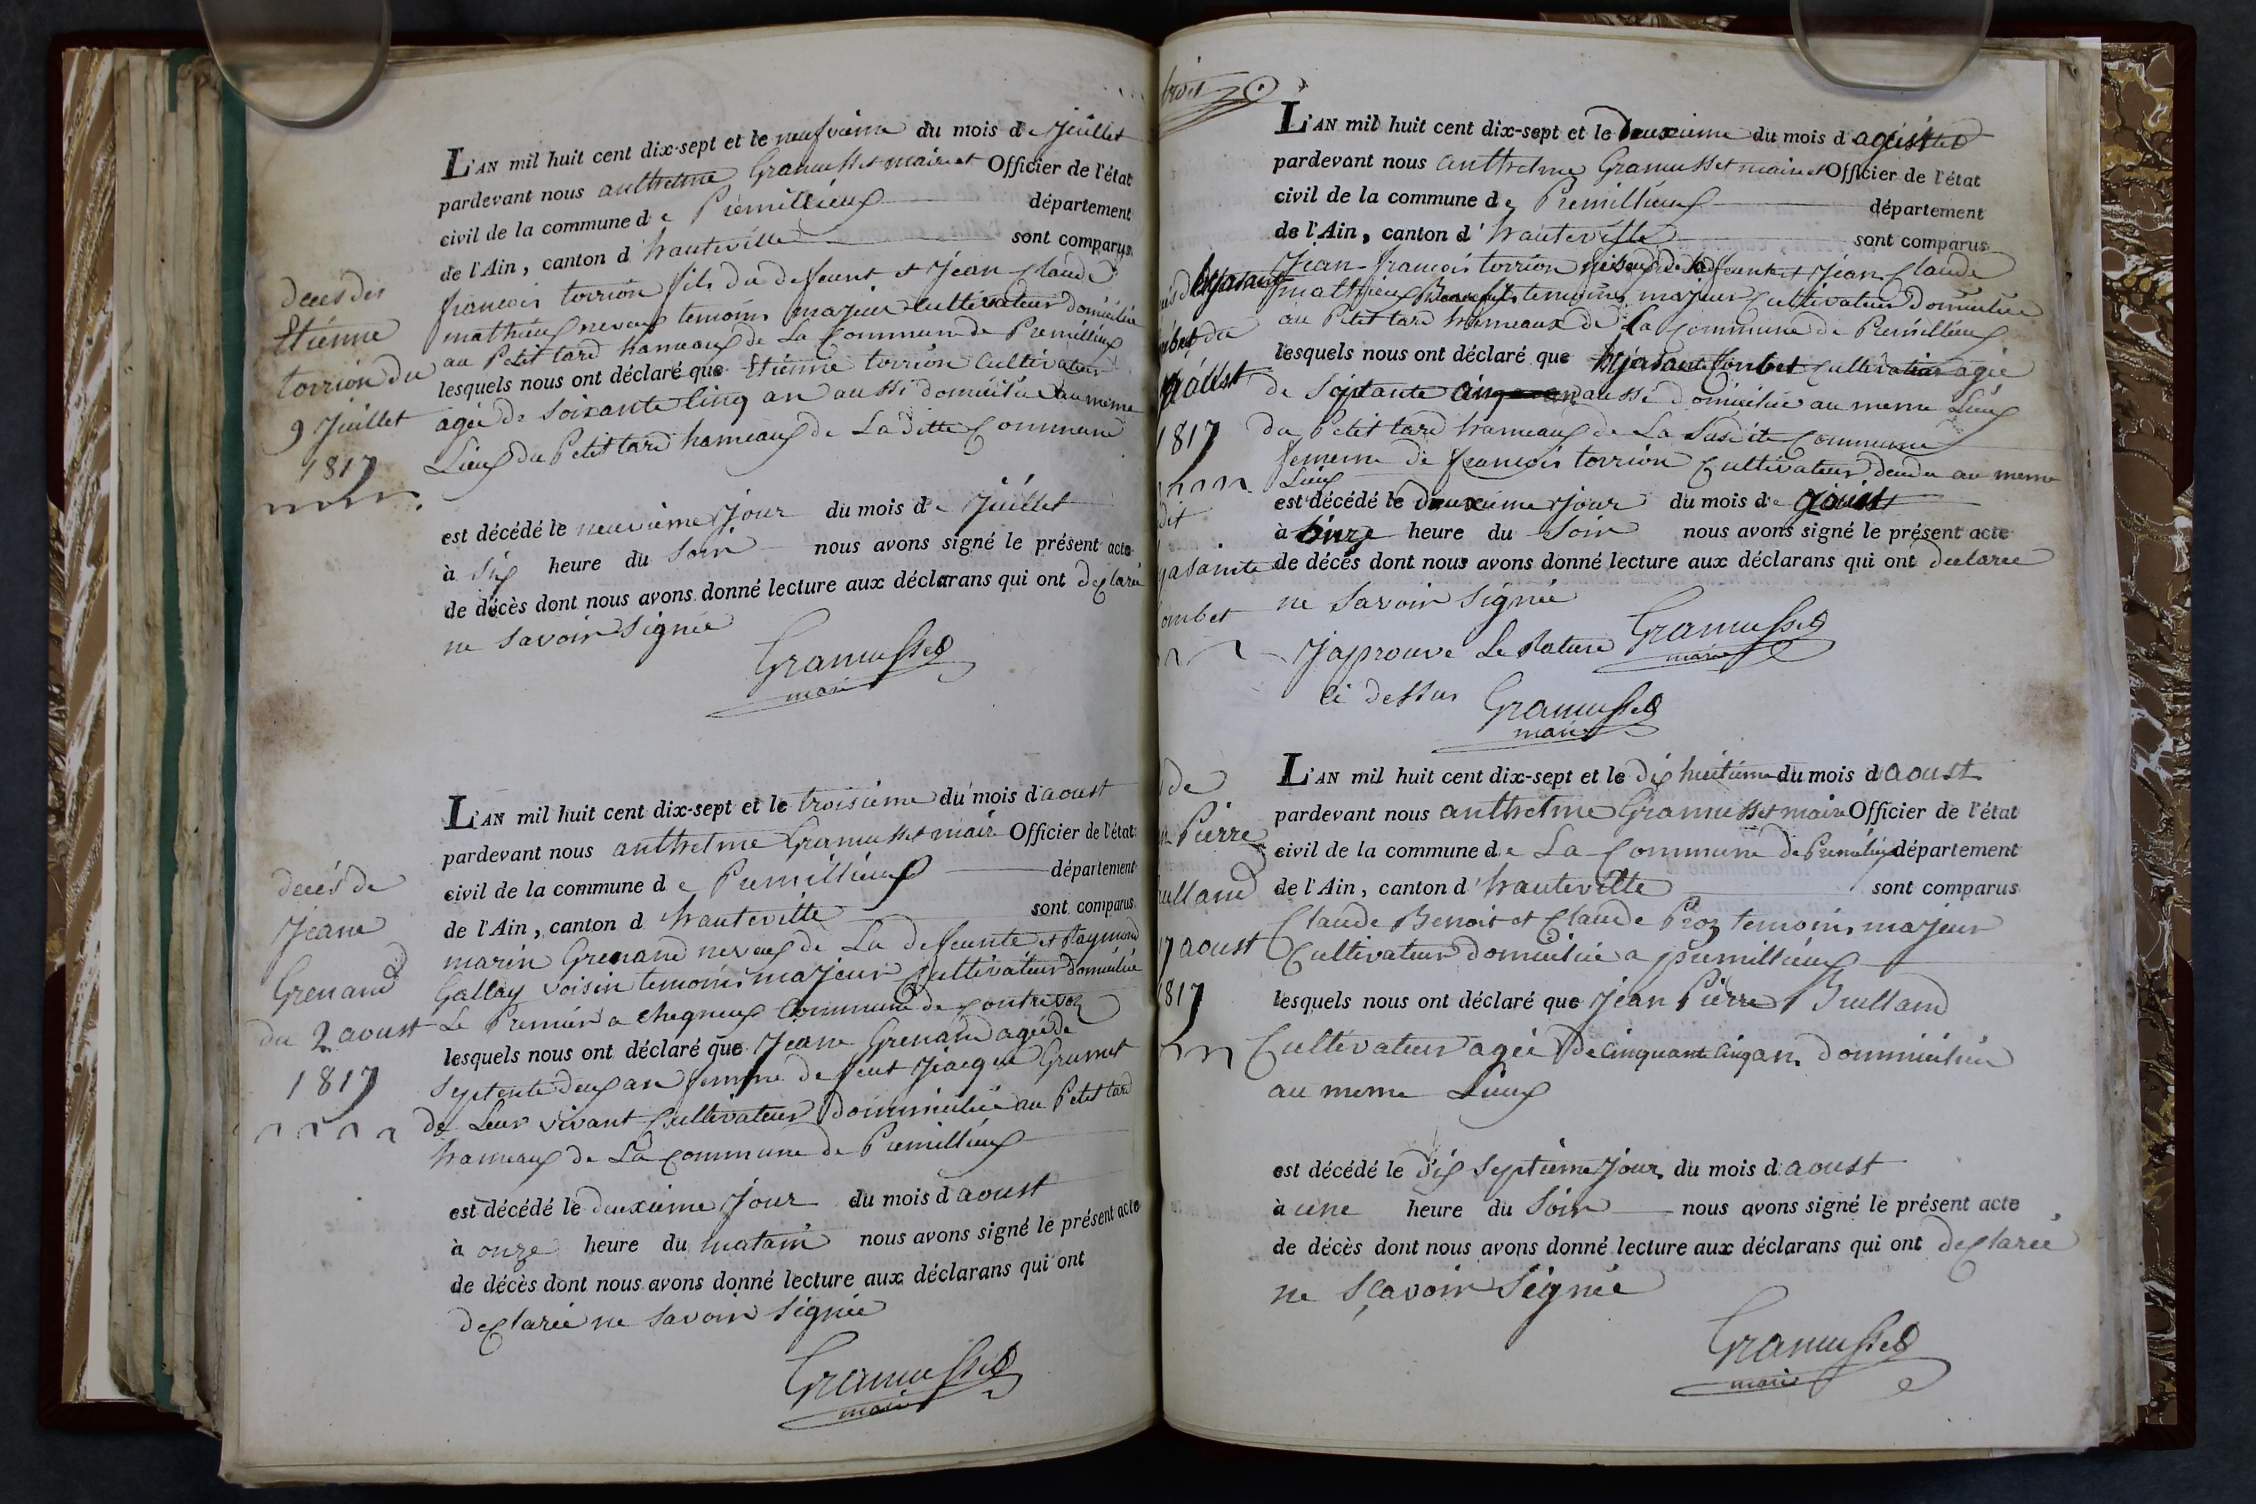 L'AN mil huit cent dix-sept et le neufvieme du mois de Juillet
pardevant nous anthelme Gramusset maire et Officier de l'état
civil de la commune de Premillieux département
de l'Ain, canton d'hauteville sont comparus
francois torrion fils du defeunt et Jean Claude
mathieux neveux temoins majeur Cultivateur domicilié
au Petit tard hameaux de La Commune de Premillieux
lesquels nous ont déclaré que Etienne torrion Cultivateur
agée de soixante Cinq an aussi domicilié au meme
Lieux du Petit tard hameaux de La ditte Commune
est décédé le neuvieme Jour du mois de Juillet
à six heure du Soir nous avons signé le présent acte
de décès dont nous avons donné lecture aux déclarans qui ont declarée
ne Savoir Signée
Gramusset
maire
deces des
Etienne
torrion du
9 Juillet
1817
L'AN mil huit cent dix-sept et le troisieme du mois d'aoust
pardevant nous anthelme Gramusset maire Officier de l'état
civil de la commune de Premillieux département
de l'Ain, canton d hauteville sont comparus
marin Grenand neveux de La defeunte et Raymond
Gallay voisin temoins majeur Cultivateur domicilié
Le Premier a chegneux Commune de Contrevoz
lesquels nous ont déclaré que Jeane Grenand agée de
septente deux an femme de feut Jacque Grumet
de Leur vivant Cultivateur dommicilié au Petit tard
hameaux de La Commune de Premillieux
est décédé le deuxieme Jour du mois d aoust
à onze heure du matain nous avons signé le présent acte
de décès dont nous avons donné lecture aux déclarans qui ont
declarée ne Savoir Signée
Gramusset
maire
decés de
Jeane
Grenand
du 2 aoust
1817
trois
L'AN mil huit cent dix-sept et le deuxieme du mois d aoust
pardevant nous anthelme Gramusset maire et Officier de l'état
civil de la commune de Premillieux département
de l'Ain, canton d'hauteville sont comparus
Jean francois torrion et Jean Claude
mathieux temoins majeur Cultivateur domicilié
au Petit tard hameaux de La Commune de Premillieux
lesquels nous ont déclaré que Cultivation agée
de Soixante aussi domicilié au meme Lieux
du Petit tard hameaux de La Susdite Commune
femme de francois torrion Cultivateur au meme
Lieux
est décédé le deuxieme Jour du mois de aoust
à onze heure du Soir nous avons signé le présent acte
de décès dont nous avons donné lecture aux déclarans qui ont declarée
ne Savoir Signée
Gramusset
maire
J'approuve Le Rature
ci dessus Gramusset
maire
du
aoust
1817
dit
ombet
L'AN mil huit cent dix-sept et le dix huitieme du mois d aoust
pardevant nous anthelme Gramusset maire Officier de l'état
civil de la commune de La Commune de Premillieux département
de l'Ain, canton d'hauteville sont comparus
Claude Benoit et Claude Proz temoins majeur
Cultivateur domicilié a premillieux
lesquels nous ont déclaré que Jean Pierre Guilland
Cultivateur agée de Cinquante Cinq an dommicilié
au meme Lieux
est décédé le dix septieme Jour du mois d'aoust
à une heure du Soir nous avons signé le présent acte
de décès dont nous avons donné lecture aux déclarans qui ont declarée
ne Sçavoir Signée
Gramusset
maire
de
Pierre
uilland
17 aoust
1817